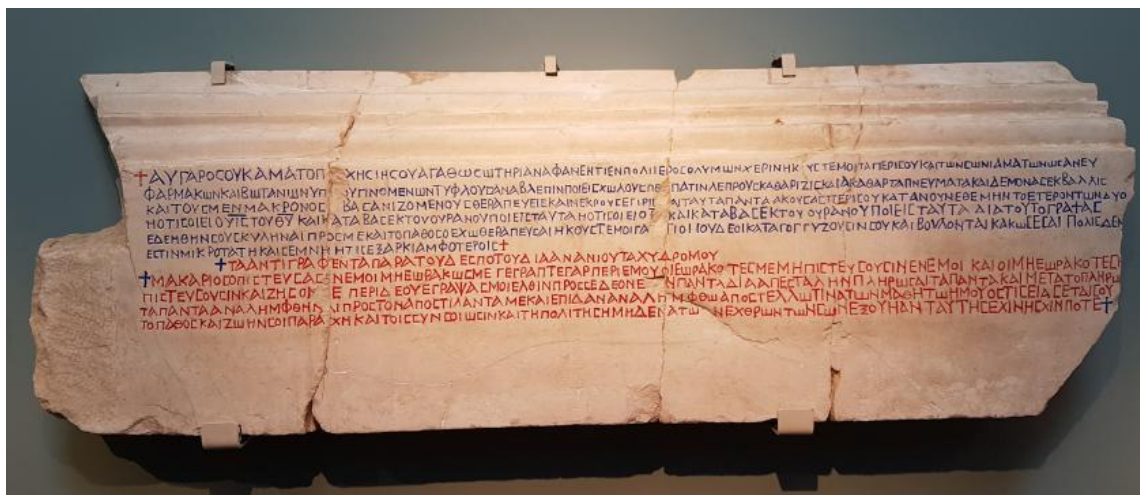 ☩ΑΥΓΑΡΟϹΟΥΚΑΜΑΤΟΠ ΧΗϹΙΗϹΟΥΑΓΑΘΩϹΩΤΗΡΙΑΝΑΦΑΝΕΝΤΙΕΝΠΟΛΙΙΕΡΟϹΟΛΥΜΩΝΧΕΡΙΝΗΚ ΥϹΤΕΜΟΙΤΑΠΕΡΙϹΟΥΚΑΙΤΩΝϹΩΝΙΑΜΑΤΩΝΩϹΑΝΕΥ
ΦΑΡΜΑΚΩΝΚΑΙΒΩΤΑΝΙΩΝΥΠ ϹΟΥΓΙΝΟΜΕΝΩΝΤΥΦΛΟΥϹΑΝΑΒΛΕΠΙΝΠΟΙΕΙϹΧΩΛΟΥϹΠΕ ΠΑΤΙΝΛΕΠΡΟΥϹΚΑΘΑΡΙΖΙϹΚΑΙΑΚΑΘΑΡΤΑΠΝΕΥΜΑΤΑΚΑΙΔΕΜΟΝΑϹΕΚΒΑΛΛΙϹ
ΚΑΙΤΟΥϹΜΕΝΜΑΚΡΟΝΟϹ ΒΑϹΑΝΙΖΟΜΕΝΟΥϹΘΕΡΑΠΕΥΕΙϹΚΑΙΝΕΚΡΟΥϹΕΓΙΡΙϹ ΑΙΤΑΥΤΑΠΑΝΤΑΑΚΟΥϹΑϹΠΕΡΙϹΟΥΚΑΤΑΝΟΥΝΕΘΕΜΗΝΤΟΕΤΕΡΟΝΤΩΝΔΥΟ
ΗΟΤΙϹΟΙΕΙΟΥΙϹΤΟΥΘΥ ΚΑΙΚΑΤΑΒΑϹΕΚΤΟΥΟΥΡΑΝΟΥΠΟΙΕΙϹΤΑΥΤΑΗΟΤΙϹΟΙΕΙΟΤ ΚΑΙΚΑΤΑΒΑϹΕΚΤΟΥΟΥΡΑΝΟΥΠΟΙΕΙϹΤΑΥΤΑΔΙΑΤΟΥΤΟΓΡΑΨΑϹ
ΕΔΕΗΘΗΝϹΟΥϹΚΥΛΗΝΑΙΠΡΟϹΜΕΚΑΙΤΟΠΑΘΟϹΟΕΧΩΘΕΡΑΠΕΥϹΑΙΗΚΟΥϹΤΕΜΟΙΓΑ ΤΙΟΙΙΟΥΔΕΟΙΚΑΤΑΓΟΓΓΥΖΟΥϹΙΝϹΟΥΚΑΙΒΟΥΛΟΝΤΑΙΚΑΚΩϹΕϹΑΙΠΟΛΙϹΔΕΝ
ΕϹΤΙΝΜΙΚΡΟΤΑΤΗΚΑΙϹΕΜΝΗ ΗΤΙϹΕΞΑΡΚΙΑΜΦΟΤΕΡΟΙϹ☩
☩ΤΑΑΝΤΙΓΡΑΦΕΝΤΑΠΑΡΑΤΟΥΔΕϹΠΟΤΟΥΔΙΑΑΝΑΝΙΟΥΤΑΧΥΔΡΟΜΟΥ
☩ΜΑΚΑΡΙΟϹΟΠΙϹΤΕΥϹΑϹΕΝΕΜΟΙΜΗΕΩΡΑΚΩϹΜΕΓΕΓΡΑΠΤΕΓΑΡΠΕΡΙΕΜΟΥΟΙΕΩΡΑΚΟΤΕϹΜΕΜΗΠΙϹΤΕΥϹΟΥϹΙΝΕΝΕΜΟΙ ΚΑΙΟΙΜΗΕΩΡΑΚΟΤΕϹ
ΠΙϹΤΕΥϹΟΥϹΙΝΚΑΙΖΗϹΟΝ Ε ΠΕΡΙΔΕΟΥΕΓΡΑΨΑϹΜΟΙΕΛΘΙΝΠΡΟϹϹΕΔΕΟΝΕ ΝΠΑΝΤΑΔΙΑΑΠΕϹΤΑΛΗΝΠΛΗΡΩϹΑΙΤΑΠΑΝΤΑΚΑΙΜΕΤΑΤΟΠΛΗΡΩ
ΤΑΠΑΝΤΑΑΝΑΛΗΜΦΘΗΝΑΙΠΡΟϹΤΟΝΑΠΟϹΤΙΛΑΝΤΑΜΕΚΑΙΕΠΙΔΑΝΑΝΑΛΗΜΦΘΩΑΠΟϹΤΕΛΛΩϹΟΙΤΙΝΑΤΩΝΜΑΘΗΤΩΝΜΟΥΟϹΤΙϹΕΙΑϹΕΤΑΙϹΟΥ
ΤΟΠΑΘΟϹΚΑΙΖΩΗΝϹΟΙΠΑΡΑϹΧΗΚΑΙΤΟΙϹϹΥΝϹΟΙΩϹΙΝΚΑΙΤΗΠΟΛΙΤΗϹΗΜΗΔΕΝΑΤΩΝΕΧΘΡΩΝΤΩΝϹΩΝΕΞΟΥΗΑΝΤΑΥΤΗϹΕΧΙΝΗϹΧΙΝΠΟΤΕ☩